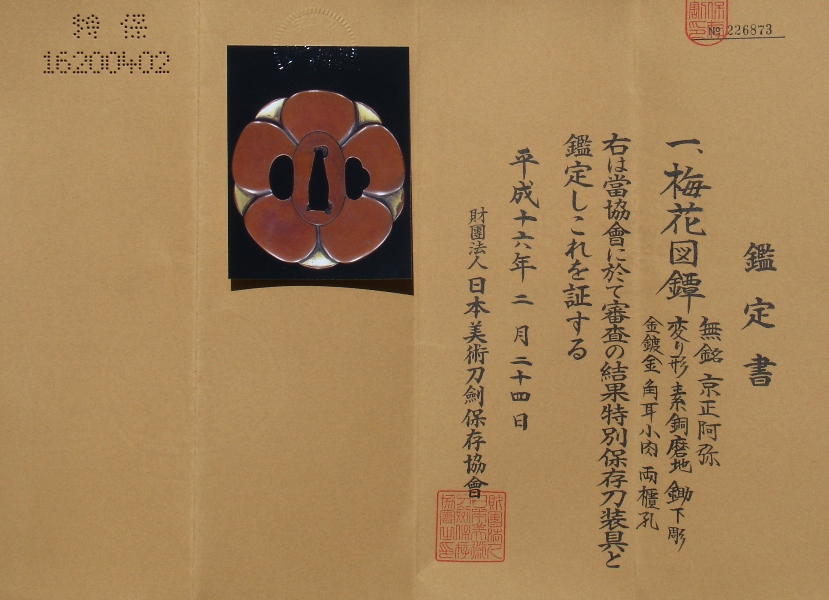 № 226873
鑑定書
一、梅花図鐔
無銘 京正阿弥
変り形 素銅磨地 鋤下彫
金鍍金 角耳小肉 両櫃孔
右は當協會に於て審査の結果特別保存刀装具と
鑑定しこれを証する
平成十六年二月二十四日
財團法人 日本美術刀劍保存協會
特保
16200402